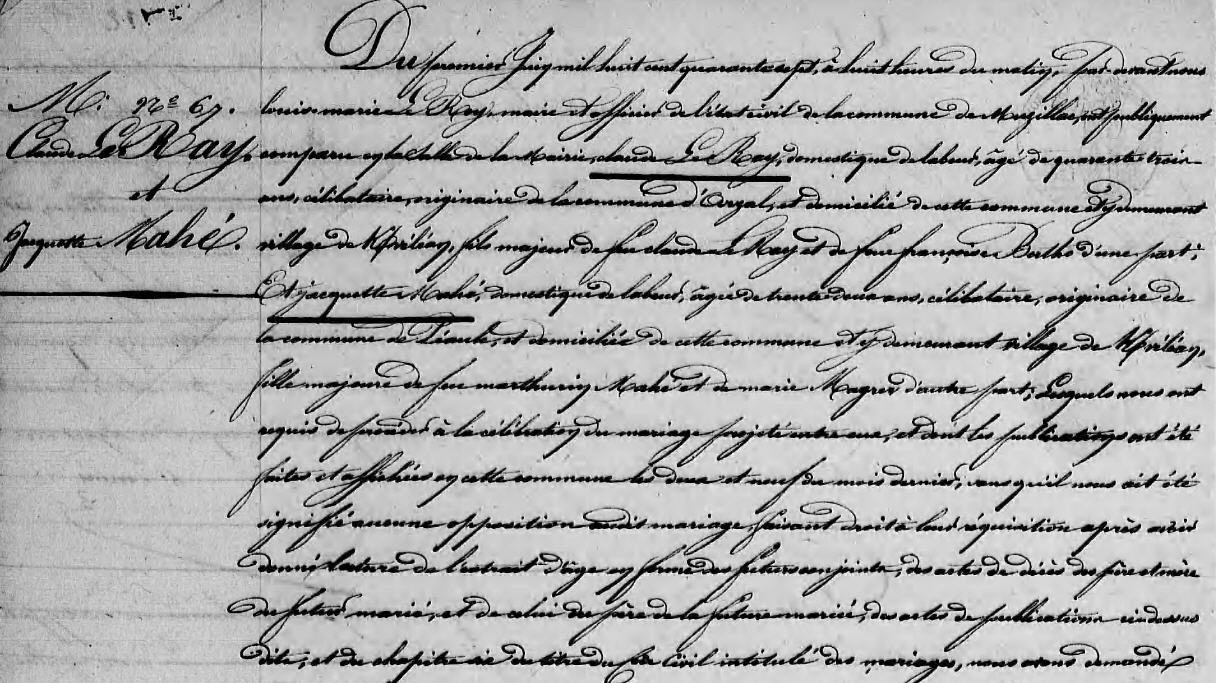 M. N° 67.
Claude Le Ray,
et
Jacquette Mahé.
Du premier Juin mil huit cent quarante sept, à huit heures du matin, par devant nous
louis marie Le Roy, maire et officier de l'état civil de la commune de Muzillac, ont publiquement
comparu en la salle de la Mairie, claude Le Ray, domestique de labeur, âgé de quarante trois
ans, célibataire, originaire de la commune d'Arzal, et domicilié de cette commune et y demeurant
village de Kviléan, fils majeur de feu claude Le Ray et de feue françoise Bertho d'une part;
Et jacquette Mahé, domestique de labeur, âgée de trente deux ans, célibataire, originaire de
la commune de Péaule, et domiciliée de cette commune et y demeurant village de Kviléan,
fille majeure de feu marthurin Mahé et de marie Magrer d'autre part; Lesquels nous ont
requis de procéder à la célébration du mariage projeté entre eux, et dont les publications ont été
faites et affichées en cette commune les deux et neuf du mois dernier; sans qu'il nous ait été
signifié aucune opposition audit mariage, faisant droit à leur réquisition après avoir
donné lecture de l'extrait d'âge en forme des futurs conjoints, des actes de décès des père et mère
du futur marié, et de celui du père de la future mariée, des actes de publications ci dessus
dits, et du chapitre six du titre du Code Civil intitulé des mariages, nous avons demandé